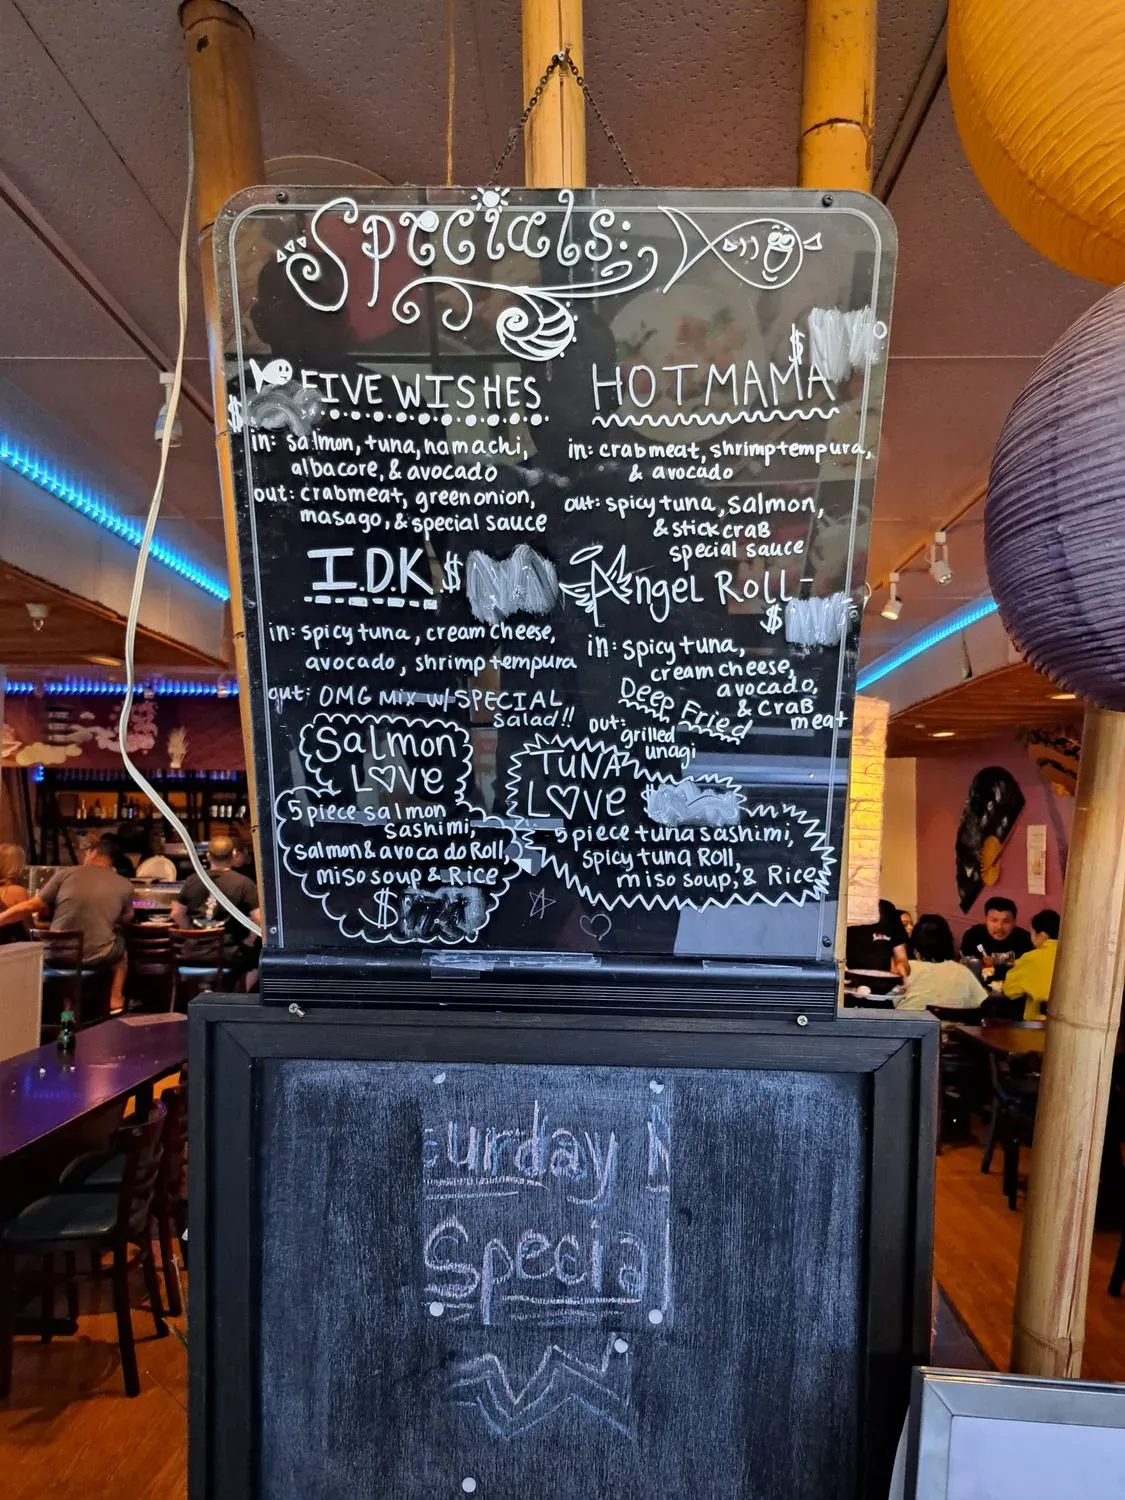 Specials:
FIVE WISHES
$
in: salmon, tuna, hamachi,
albacore, & avocado
out: crabmeat, green onion,
masago, & special sauce
$
HOT MAMA
in: crabmeat, shrimp tempura,
& avocado
out: spicy tuna, salmon,
& stick craB
special sauce
I.D.K $
in: spicy tuna, cream cheese,
avocado, shrimp tempura
out: OMG Mix w/ SPECIAL
salad!!
Angel Roll-
$
in: spicy tuna,
cream cheese,
avocado,
& craB
meat
Deep Fried
out: grilled
unagi
Salmon
LOve
5 piece salmon
sashimi,
salmon & avocado Roll,
miso soup & Rice
$
TUNA
LOve $
5 piece tuna sashimi,
spicy tuna Roll,
miso soup, & Rice
urday
Special